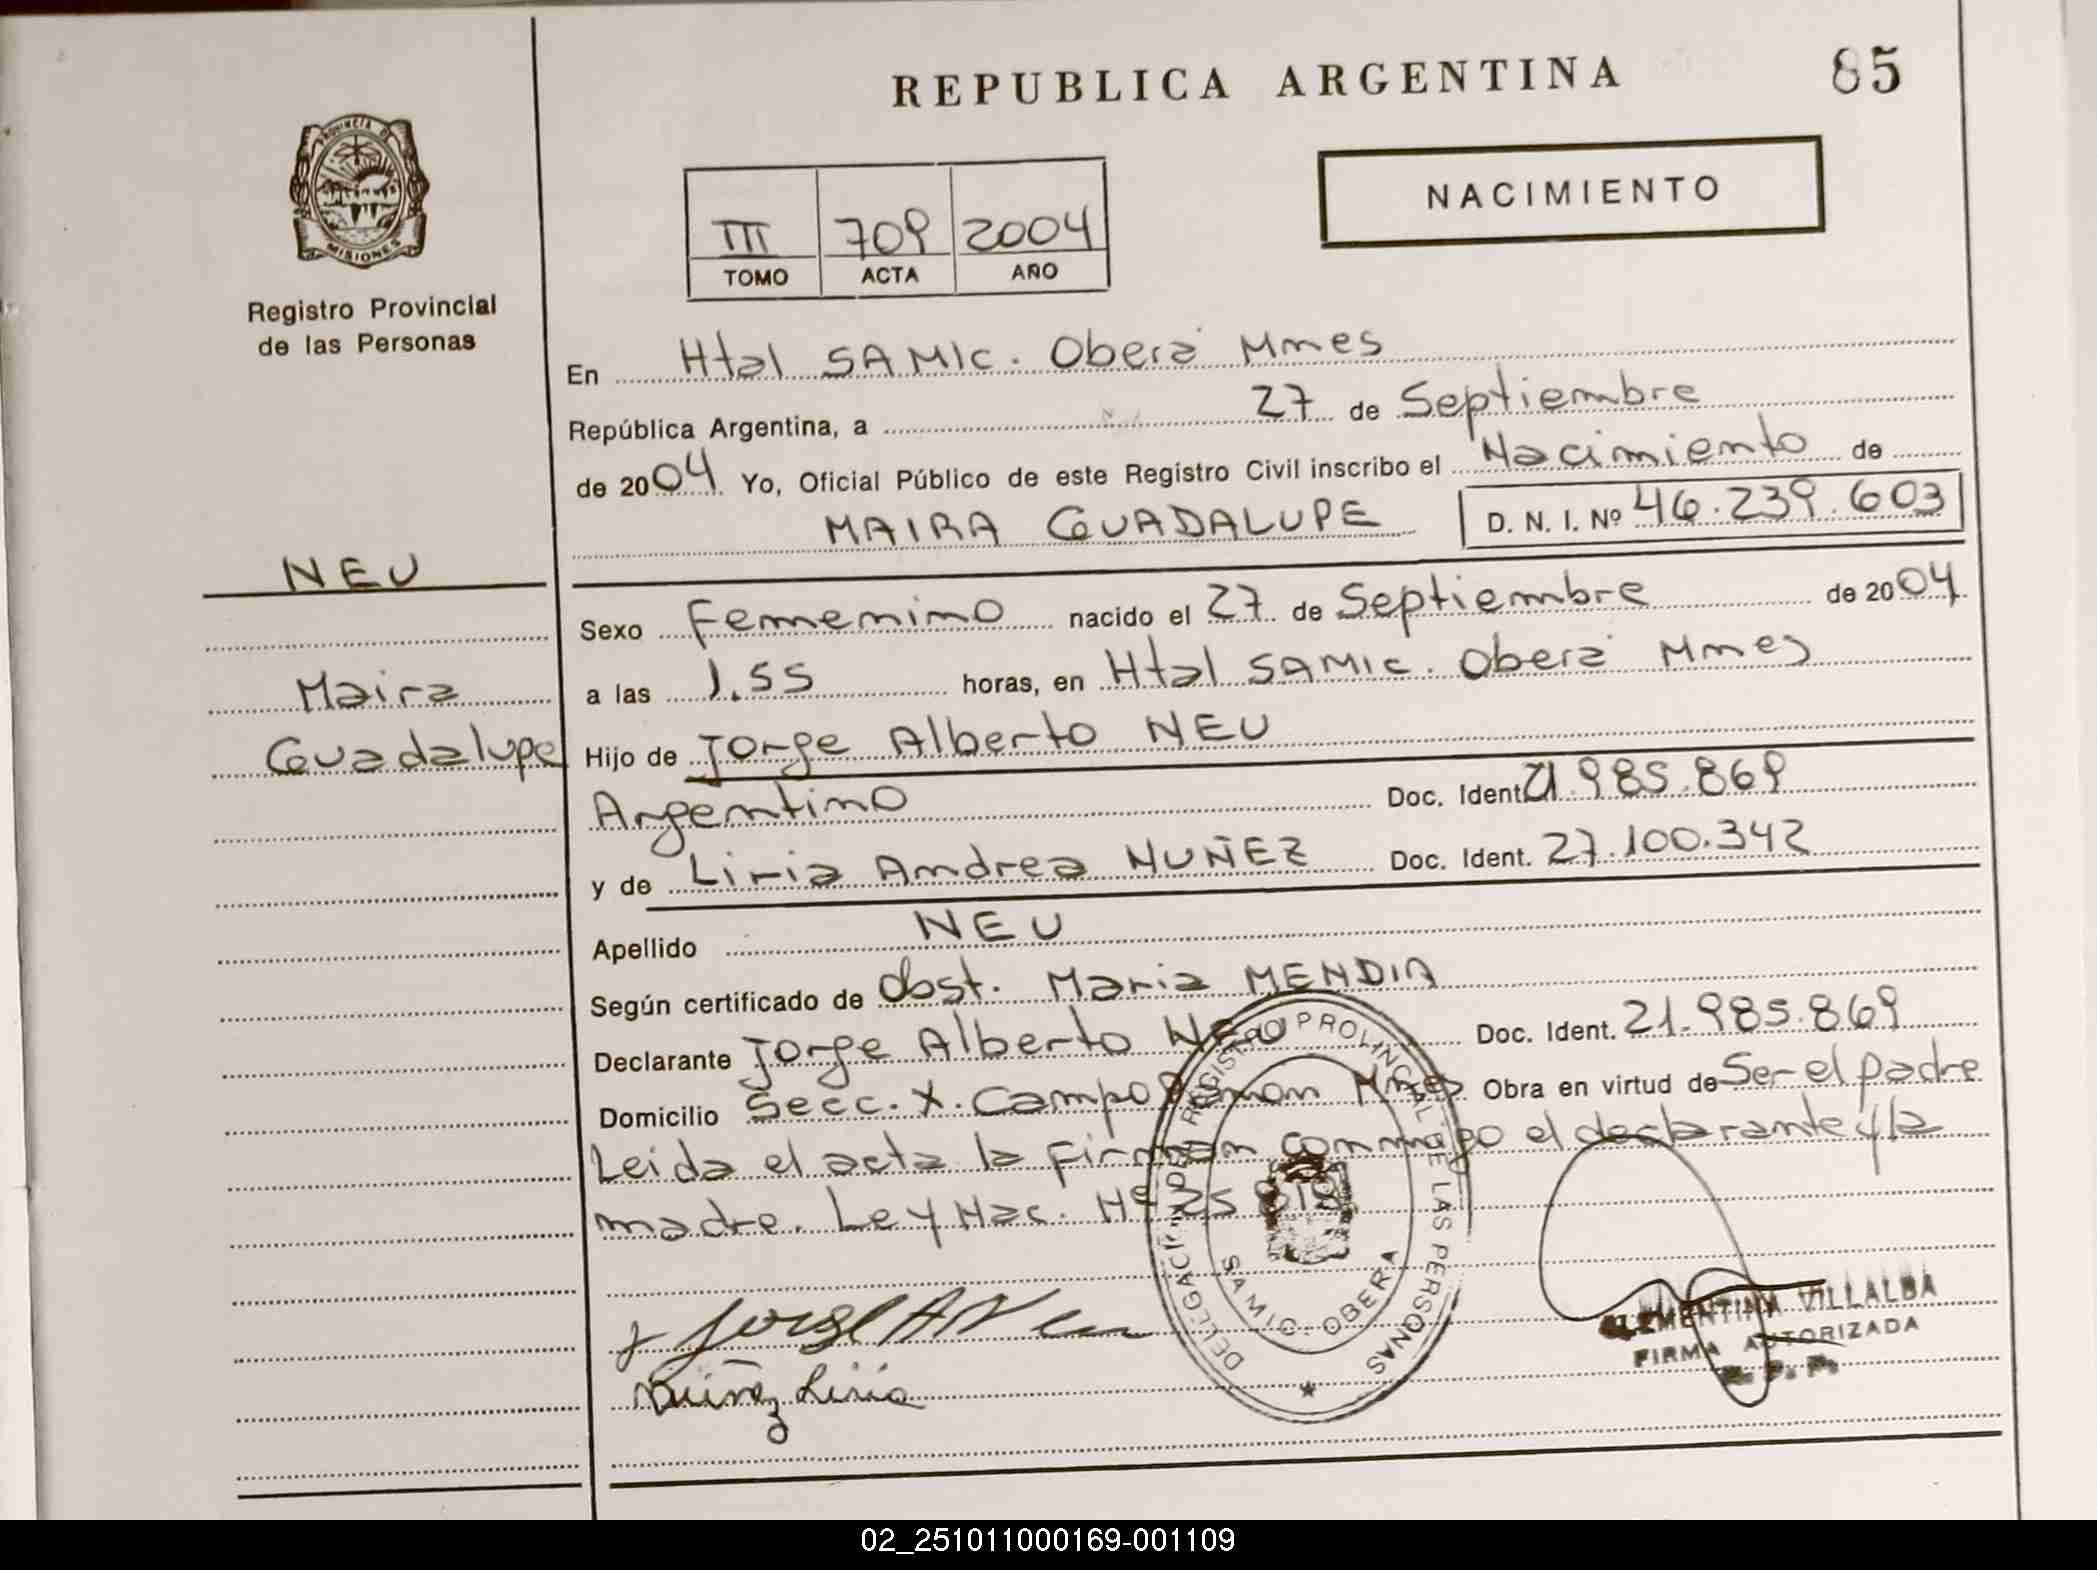 REPUBLICA ARGENTINA
85
NACIMIENTO
III 709 2004
TOMO ACTA AÑO
PROVINCIA DE
MISIONES
Registro Provincial
de las Personas
En Htal SAMIC. Oberá Mnes
República Argentina, a 27 de Septiembre
de 2004 Yo, Oficial Público de este Registro Civil inscribo el Nacimiento de
MAIRA GUADALUPE D. N. I. Nº 46.239.603
NEU
Maira
Guadalupe
Sexo Femenino nacido el 27 de Septiembre de 2004
a las 1.55 horas, en Htal SAMIC. Oberá Mnes
Hijo de Jorge Alberto NEU
Argentino Doc. Ident. 21.985.869
y de Liria Andrea NUÑEZ Doc. Ident. 27.100.342
Apellido NEU
Según certificado de Obst. Maria MENDIA
Declarante Jorge Alberto NEU Doc. Ident. 21.985.869
Domicilio Secc. X. Campo Ramon Mnes Obra en virtud de Ser el padre
Leida el acta la Firman conmigo el declarante y la
madre. Ley Nac. Nº 25.818
DELEGACION DEL REGISTRO PROVINCIAL DE LAS PERSONAS
SAMIC. OBERA
Jorge A Neu
Nuñez Liria
CLEMENTINA VILLALBA
FIRMA AUTORIZADA
R. P. P.
02_251011000169-001109